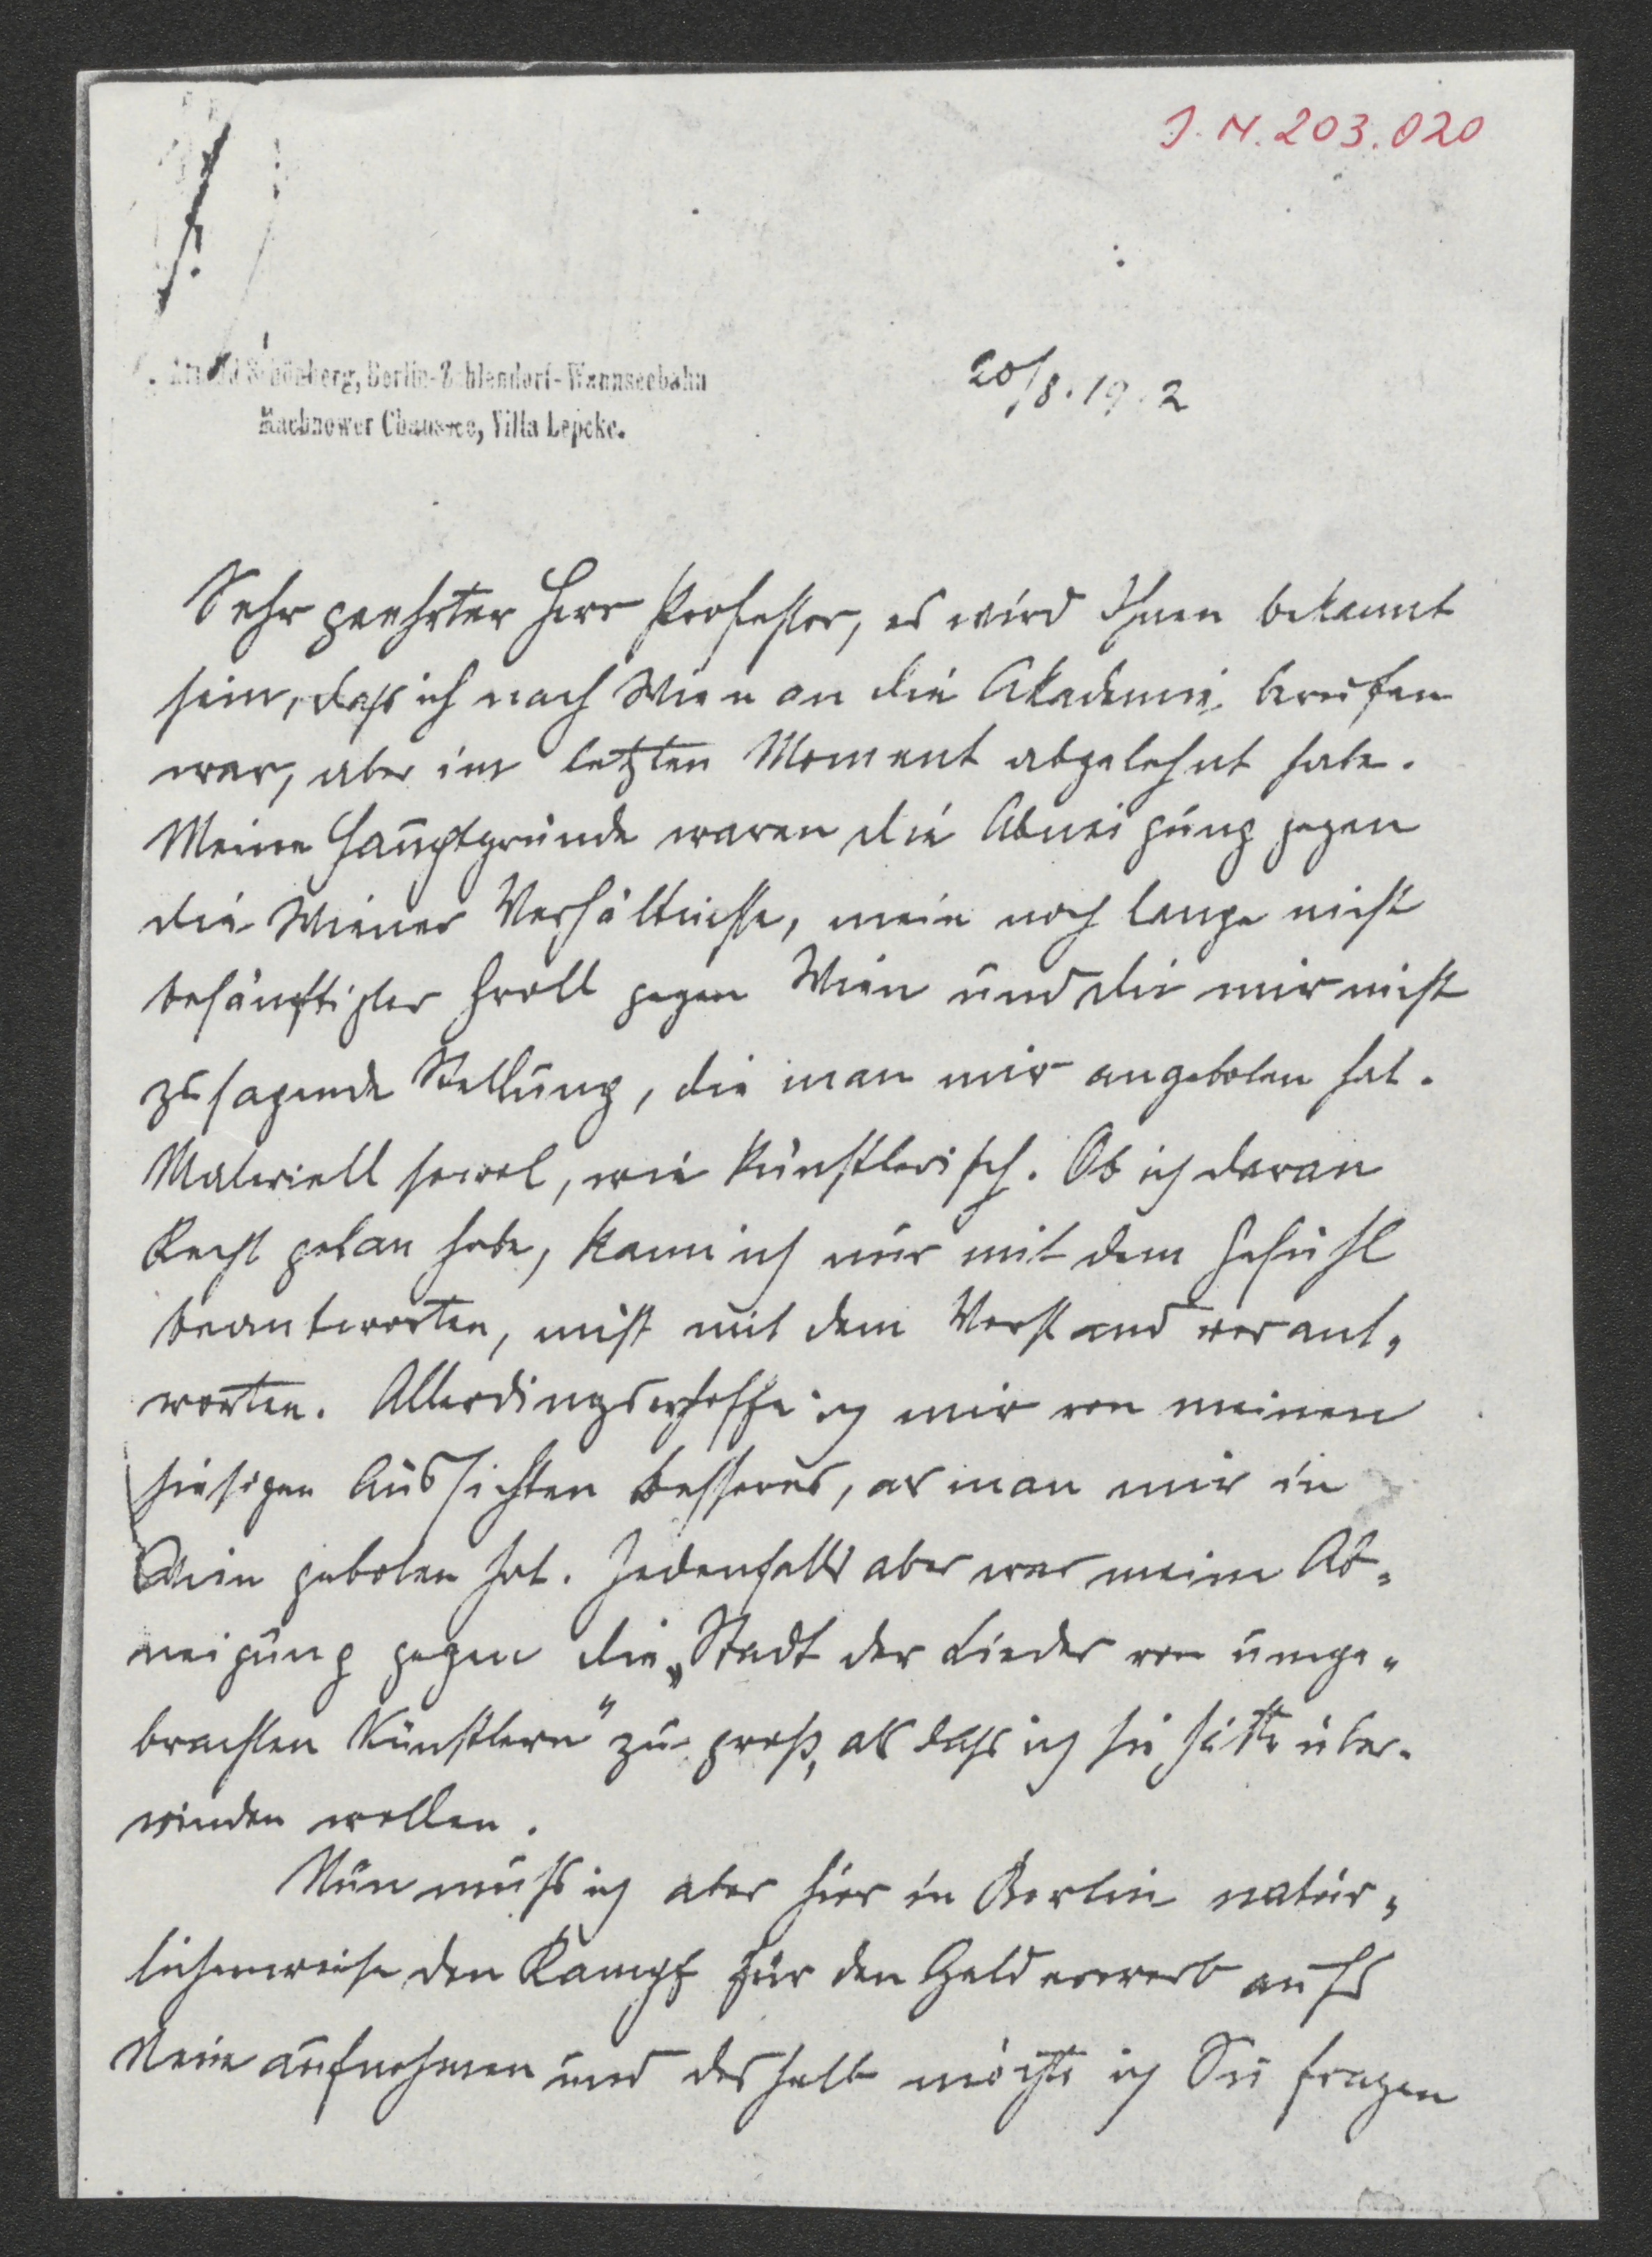 J. N. 203.020
Arnold Schönberg, Berlin-Zehlendorf-Wannseebahn
Machnower Chaussee, Villa Lepcke.
20/8.19.2
Sehr geehrter Herr Professor, es wird Ihnen bekannt
sein, dass ich nach Wien an die Akademie berufen
war, aber im letzten Moment abgelehnt habe.
Meine Hauptgründe waren die Abneigung gegen
die Wiener Verhältnisse, mein noch lange nicht
besänftigter Groll gegen Wien und die mir nicht
zusagende Stellung, die man mir angeboten hat.
Materiell sowol, wie künstlerisch. Ob ich daran
Recht getan habe, kann ich nur mit dem Gefühl
beantworten, nicht mit dem Verstand verant-
worten. Allerdings erhoffe ich mir von meinen
hiesigen Aussichten besseres, als man mir in
Wien geboten hat. Jedenfalls aber war meine Ab-
neigung gegen die „Stadt der Lieder von umge-
brachten Künstlern“ zu groß, als dass ich sie hätte über-
winden wollen.
Nun muss ich aber hier in Berlin natür-
licherweise den Kampf für den Gelderwerb aufs
Neue aufnehmen und deshalb möchte ich Sie fragen